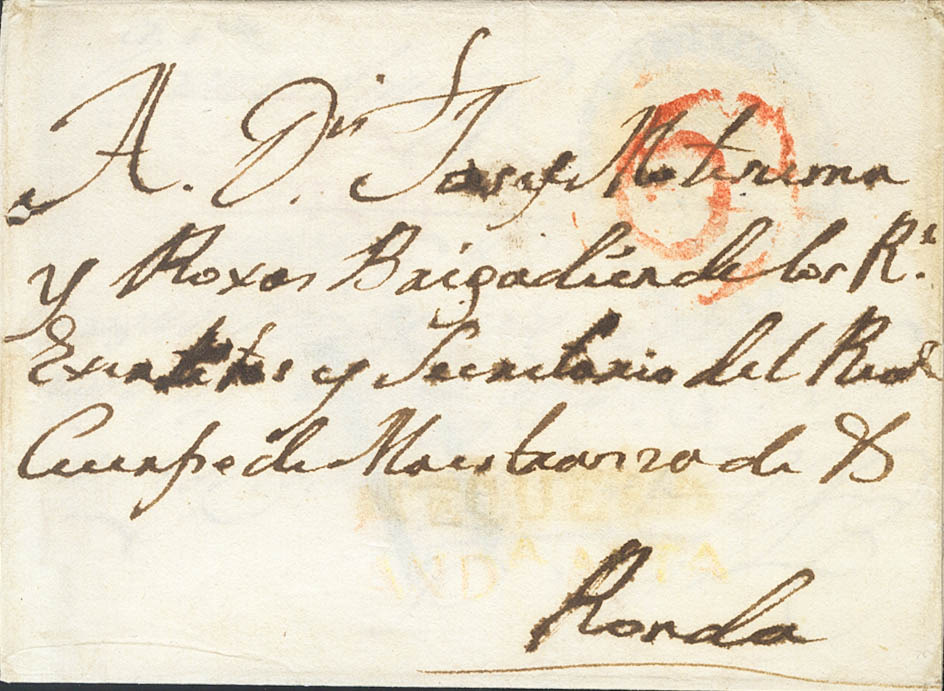 A. Dn. Josef Moterima
y Roxas Brigadier de los Rs.
Exercitos y Secretario del Real
Cuerpo de Maestranza de
Ronda
6
ANDA ALTA